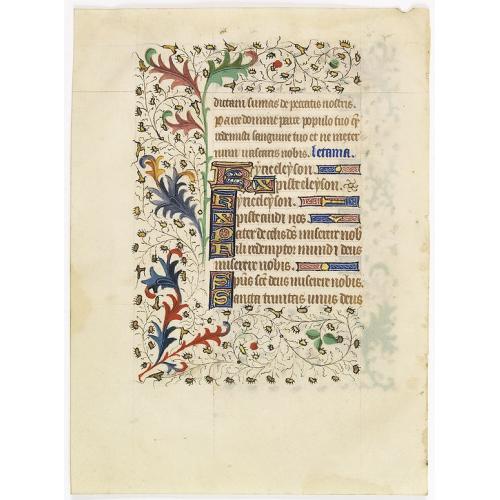 dictam sumas de peccatis nostris.
Parce domine parce populo tuo q̄
redemisti sanguine tuo et ne in eter
num irascaris nobis. letania.
Kyrieleyson.
Xpisteleyson.
Kyrieleyson.
Xpiste audi nos.
Pater de celis ds̄ miserere nob
Fili redemptor mundi deus
miserere nobis.
Sp̄us sc̄e deus miserere nobis.
Sancta trinitas unus deus